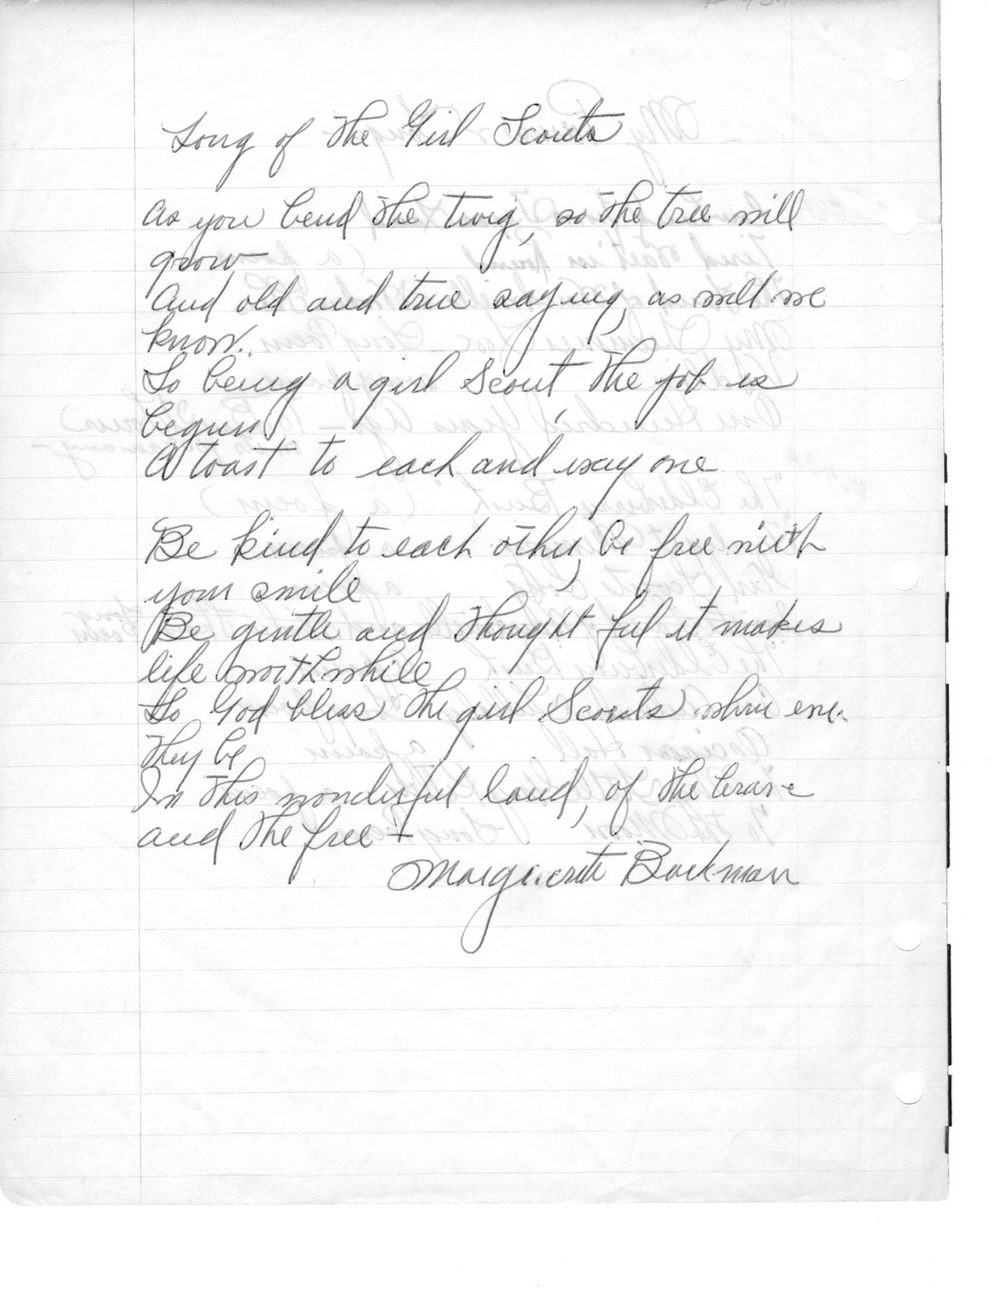 Song of the Girl Scouts
As you bend the twig, so the tree will
grow
And old and true saying, as well we
know.
So being a girl Scout, the job is
begun
A toast to each and every one
Be kind to each other, be free with
your smile
Be gentle and thought ful it makes
life worthwhile
So God bless the girl Scouts where ere
they be
In this wonderful land, of the brave
and the free -
Marguerite Backman